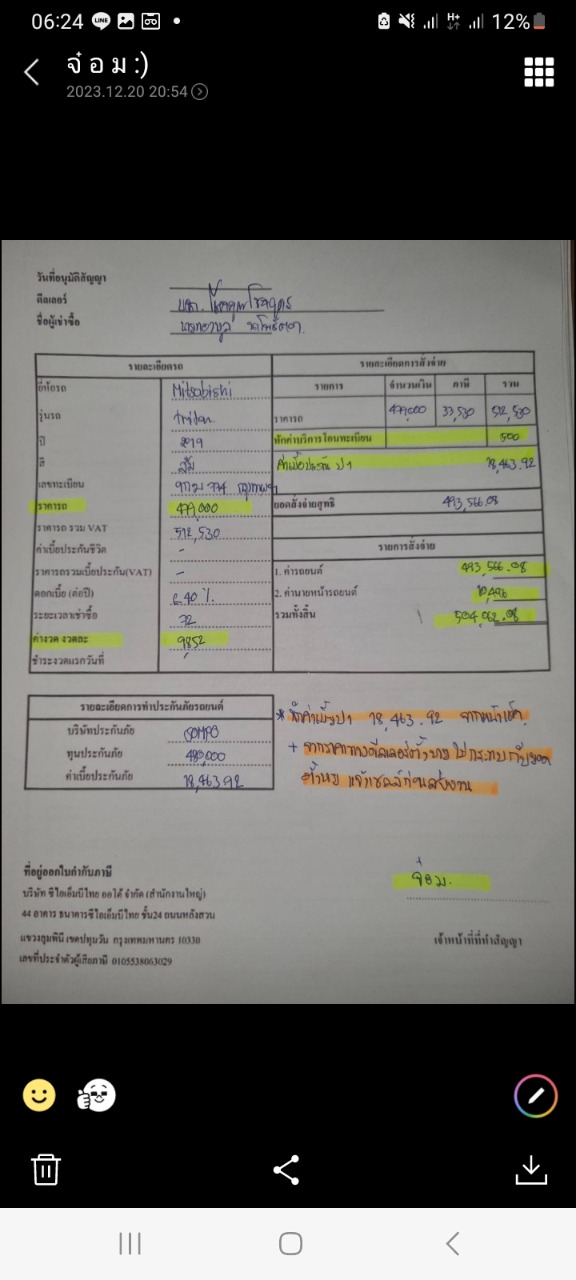 06:24
12%
จ๋อม:)
2023.12.20 20:54
วันที่อนุมัติสัญญา
ดีลเลอร์
ชื่อผู้เช่าซื้อ
รายละเอียดรถ
ยี่ห้อรถ Mitsubishi
รุ่นรถ triton
ปี 2019
สี ส้ม
เลขทะเบียน
ราคารถ 479,000
ราคารถ รวม VAT 512,530
ค่าเบี้ยประกันชีวิต -
ราคารถรวมเบี้ยประกัน(VAT) -
ดอกเบี้ย (ต่อปี)
ระยะเวลาเช่าซื้อ 72
ค่างวด งวดละ 9,852
ชำระงวดแรกวันที่
รายละเอียดการสั่งจ่าย
รายการ จำนวนเงิน ภาษี รวม
ราคารถ 479,000 33,530 512,530
หักค่าบริการโอนทะเบียน 500
ค่าเบี้ยประกัน ป1 18,463.92
ยอดสั่งจ่ายสุทธิ 493,566.08
รายการสั่งจ่าย
1. ค่ารถยนต์ 493,566.08
2. ค่านายหน้ารถยนต์ 10,496
รวมทั้งสิ้น 504,062.08
รายละเอียดการทำประกันภัยรถยนต์
บริษัทประกันภัย SOMPO
ทุนประกันภัย 480,000
ค่าเบี้ยประกันภัย 18,463.92
* หักค่าเบี้ย ป1 18,463.92 จากหน้าเช็ค
แจ้งเซลล์ก่อนส่งงาน
จ๋อม.
เจ้าหน้าที่ที่ทำสัญญา
ที่อยู่ออกใบกำกับภาษี
บริษัท ซีไอเอ็มบีไทย ออโต้ จำกัด (สำนักงานใหญ่)
44 อาคาร ธนาคารซีไอเอ็มบีไทย ชั้น24 ถนนหลังสวน
แขวงลุมพินี เขตปทุมวัน กรุงเทพมหานคร 10330
เลขที่ประจำตัวผู้เสียภาษี 0105538063029